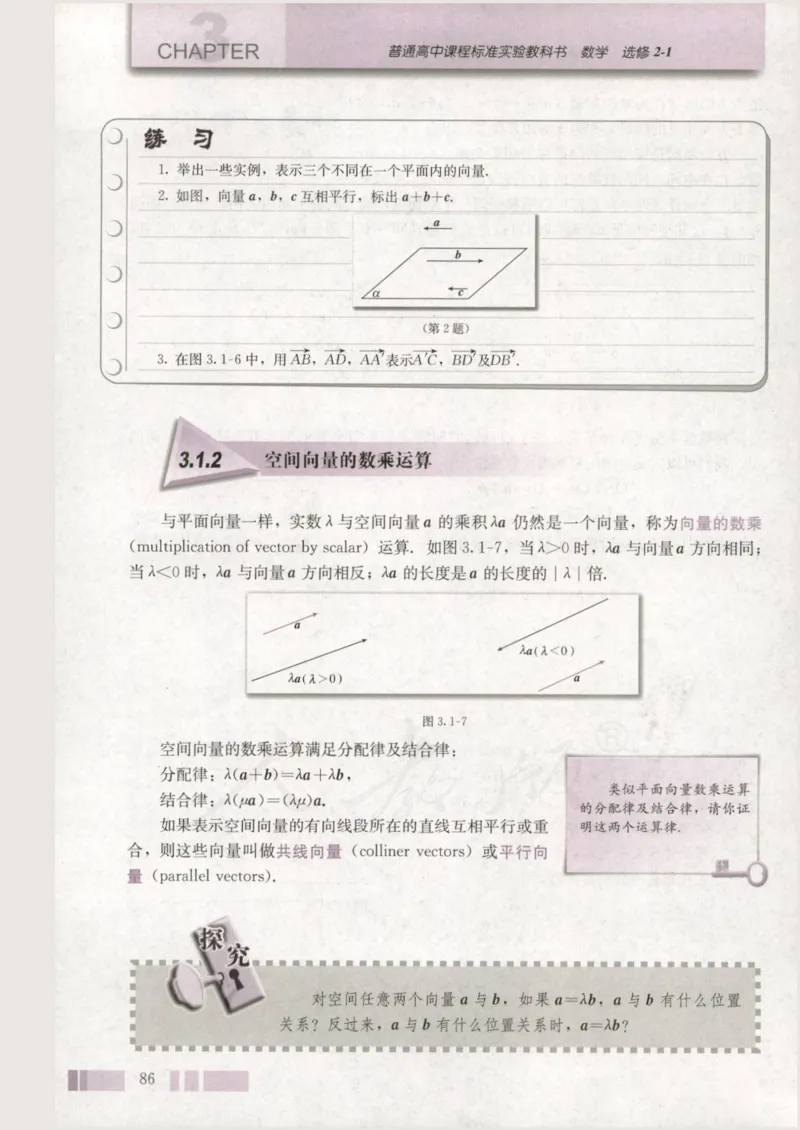 3
CHAPTER
普通高中课程标准实验教科书 数学 选修 2-1
练 习
1. 举出一些实例，表示三个不同在一个平面内的向量.
2. 如图，向量 a，b，c 互相平行，标出 a+b+c.
a
b
α
c
（第 2 题）
3. 在图 3.1-6 中，用 AB，AD，AA′表示A′C，BD′及DB′.
3.1.2 空间向量的数乘运算
与平面向量一样，实数 λ 与空间向量 a 的乘积 λa 仍然是一个向量，称为向量的数乘
（multiplication of vector by scalar）运算. 如图 3.1-7，当 λ>0 时，λa 与向量 a 方向相同；
当 λ<0 时，λa 与向量 a 方向相反；λa 的长度是 a 的长度的 | λ | 倍.
a
λa(λ>0)
λa(λ<0)
a
图 3.1-7
空间向量的数乘运算满足分配律及结合律：
分配律：λ(a+b)=λa+λb，
结合律：λ(μa)=(λμ)a.
如果表示空间向量的有向线段所在的直线互相平行或重
合，则这些向量叫做共线向量（colliner vectors）或平行向
量（parallel vectors).
类似平面向量数乘运算
的分配律及结合律，请你证
明这两个运算律.
探
究
对空间任意两个向量 a 与 b，如果 a=λb，a 与 b 有什么位置
关系？反过来，a 与 b 有什么位置关系时，a=λb？
86